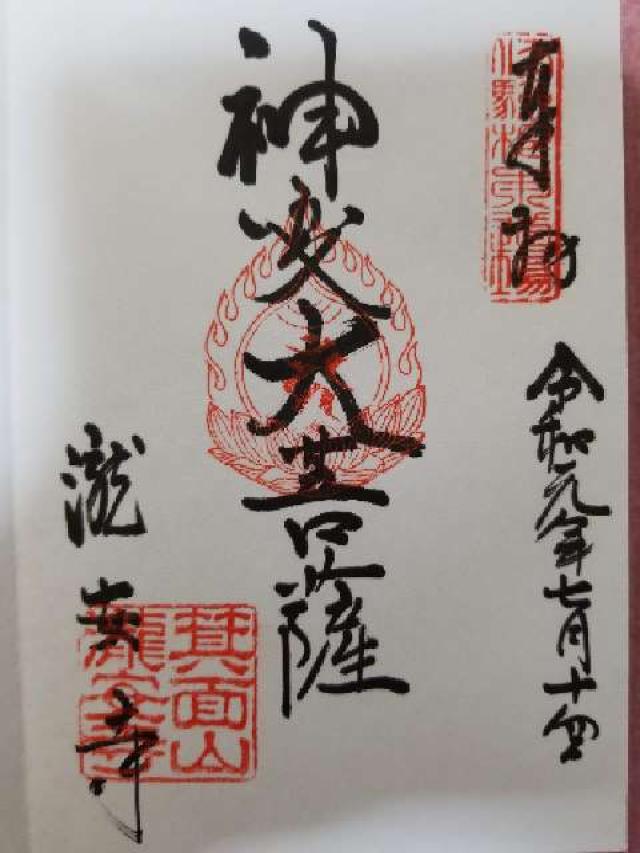 奉拝
修験根本道場
令和元年七月十四
神変大菩薩
瀧安寺
箕面山
瀧安寺